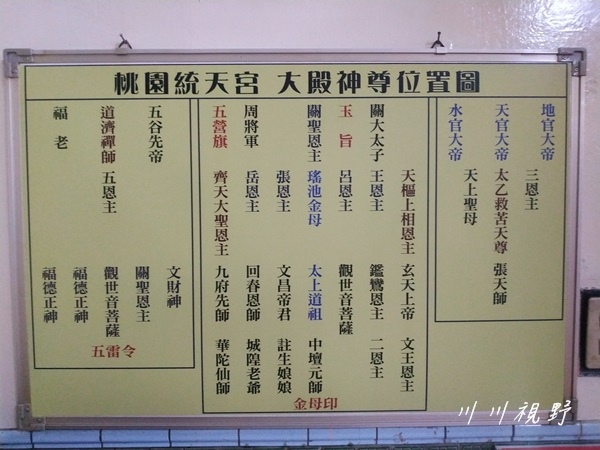 桃園統天宮 大殿神尊位置圖
地官大帝
三恩主
天官大帝 太乙救苦天尊 張天師
天上聖母
水官大帝
天樞上相恩主 玄天上帝 文王恩主
關大太子 王恩主 鑑鸞恩主 二恩主
玉旨 呂恩主 觀世音菩薩
關聖恩主 瑤池金母 太上道祖 中壇元帥
張恩主 文昌帝君 註生娘娘
周將軍 岳恩主 回春恩師 城隍老爺
五營旗 齊天大聖恩主 九府先師 華陀仙師
金母印
文財神
五谷先帝 關聖恩主
道濟禪師 五恩主 觀世音菩薩
福德正神
福老 福德正神
五雷令
川川視野